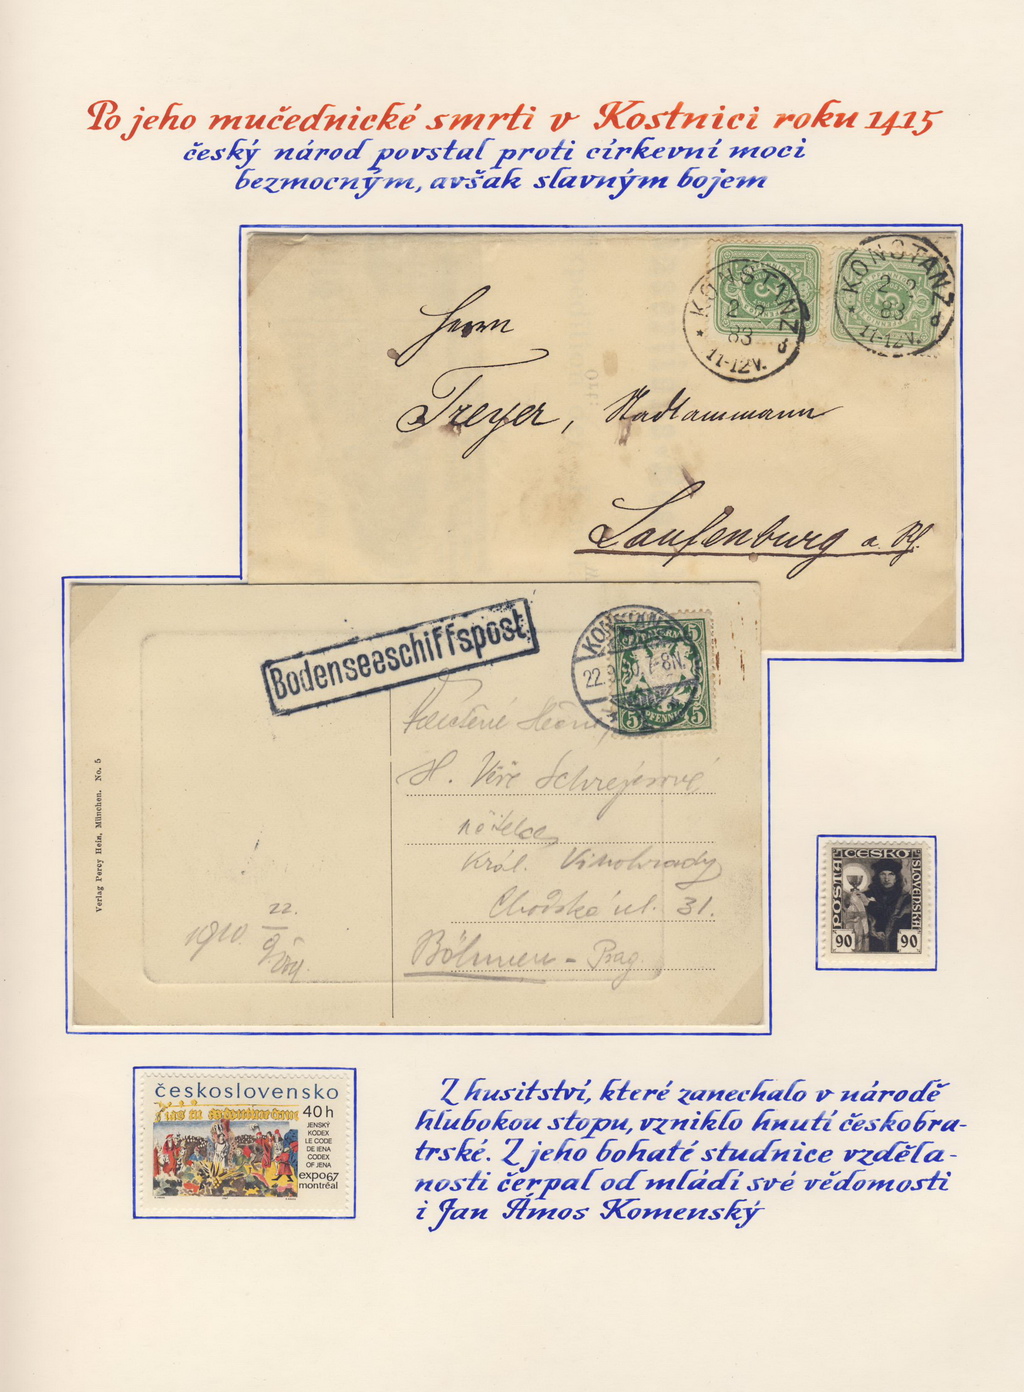 Po jeho mučednické smrti v Kostnici roku 1415
český národ povstal proti církevní moci
bezmocným, avšak slavným bojem
KONSTANZ
83
11-12V.
KONSTANZ
83
11-12V.
Herrn
Treyer, Stadtammann
Laufenburg a. Rh.
Bodenseeschiffspost
22. 7-8N.
5 5
PFENNIG
5 5
Verlag Percy Hein, München. No. 5
Sl. Věře Schrejerové
Král. Vinohrady
Chodská ul. 31.
Böhmen - Prag.
22.
1910
POŠTA ČESKO SLOVENSKÁ
90 90
československo
40 h
JENSKÝ
KODEX
LE CODE
DE IENA
CODEX
OF JENA
expo67
montréal
Z husitství, které zanechalo v národě
hlubokou stopu, vzniklo hnutí českobra-
trské. Z jeho bohaté studnice vzděla-
nosti čerpal od mládí své vědomosti
i Jan Ámos Komenský